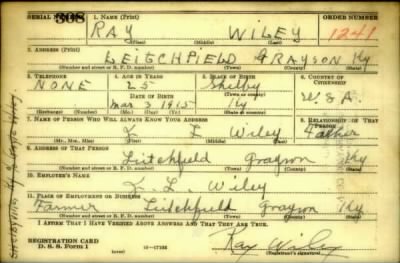 SERIAL 308 1. NAME (Print) ORDER NUMBER
RAY WILEY 1241
(First) (Middle) (Last)
2. ADDRESS (Print)
LEITCHFIELD GRAYSON Ky
(Number and street or R. F. D. number) (Town) (County) (State)
3. TELEPHONE 4. AGE IN YEARS 5. PLACE OF BIRTH 6. COUNTRY OF CITIZENSHIP
NONE 25 Shelby
DATE OF BIRTH (Town or county)
Mar 3 1915 Ky U.S.A.
(Exchange) (Number) (Mo.) (Day) (Yr.) (State or country)
7. NAME OF PERSON WHO WILL ALWAYS KNOW YOUR ADDRESS 8. RELATIONSHIP OF THAT PERSON
L Wiley Father
(Mr., Mrs., Miss) (First) (Middle) (Last)
9. ADDRESS OF THAT PERSON
Litchfield Grayson Ky
(Number and street or R. F. D. number) (Town) (County) (State)
10. EMPLOYER'S NAME
L. Wiley
11. PLACE OF EMPLOYMENT OR BUSINESS
Farmer Litchfield Grayson Ky
(Number and street or R. F. D. number) (Town) (County) (State)
I AFFIRM THAT I HAVE VERIFIED ABOVE ANSWERS AND THAT THEY ARE TRUE.
REGISTRATION CARD
D. S. S. Form 1 16-17105 Ray Wiley
(Registrant's signature)